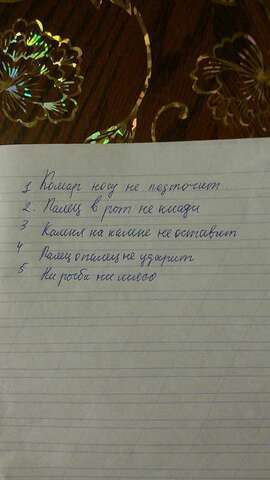 1 Комар носу не подточит.
2. Палец в рот не клади
3 Камня на камне не оставит
4 Палец о палец не ударит
5 Ни рыба ни мясо